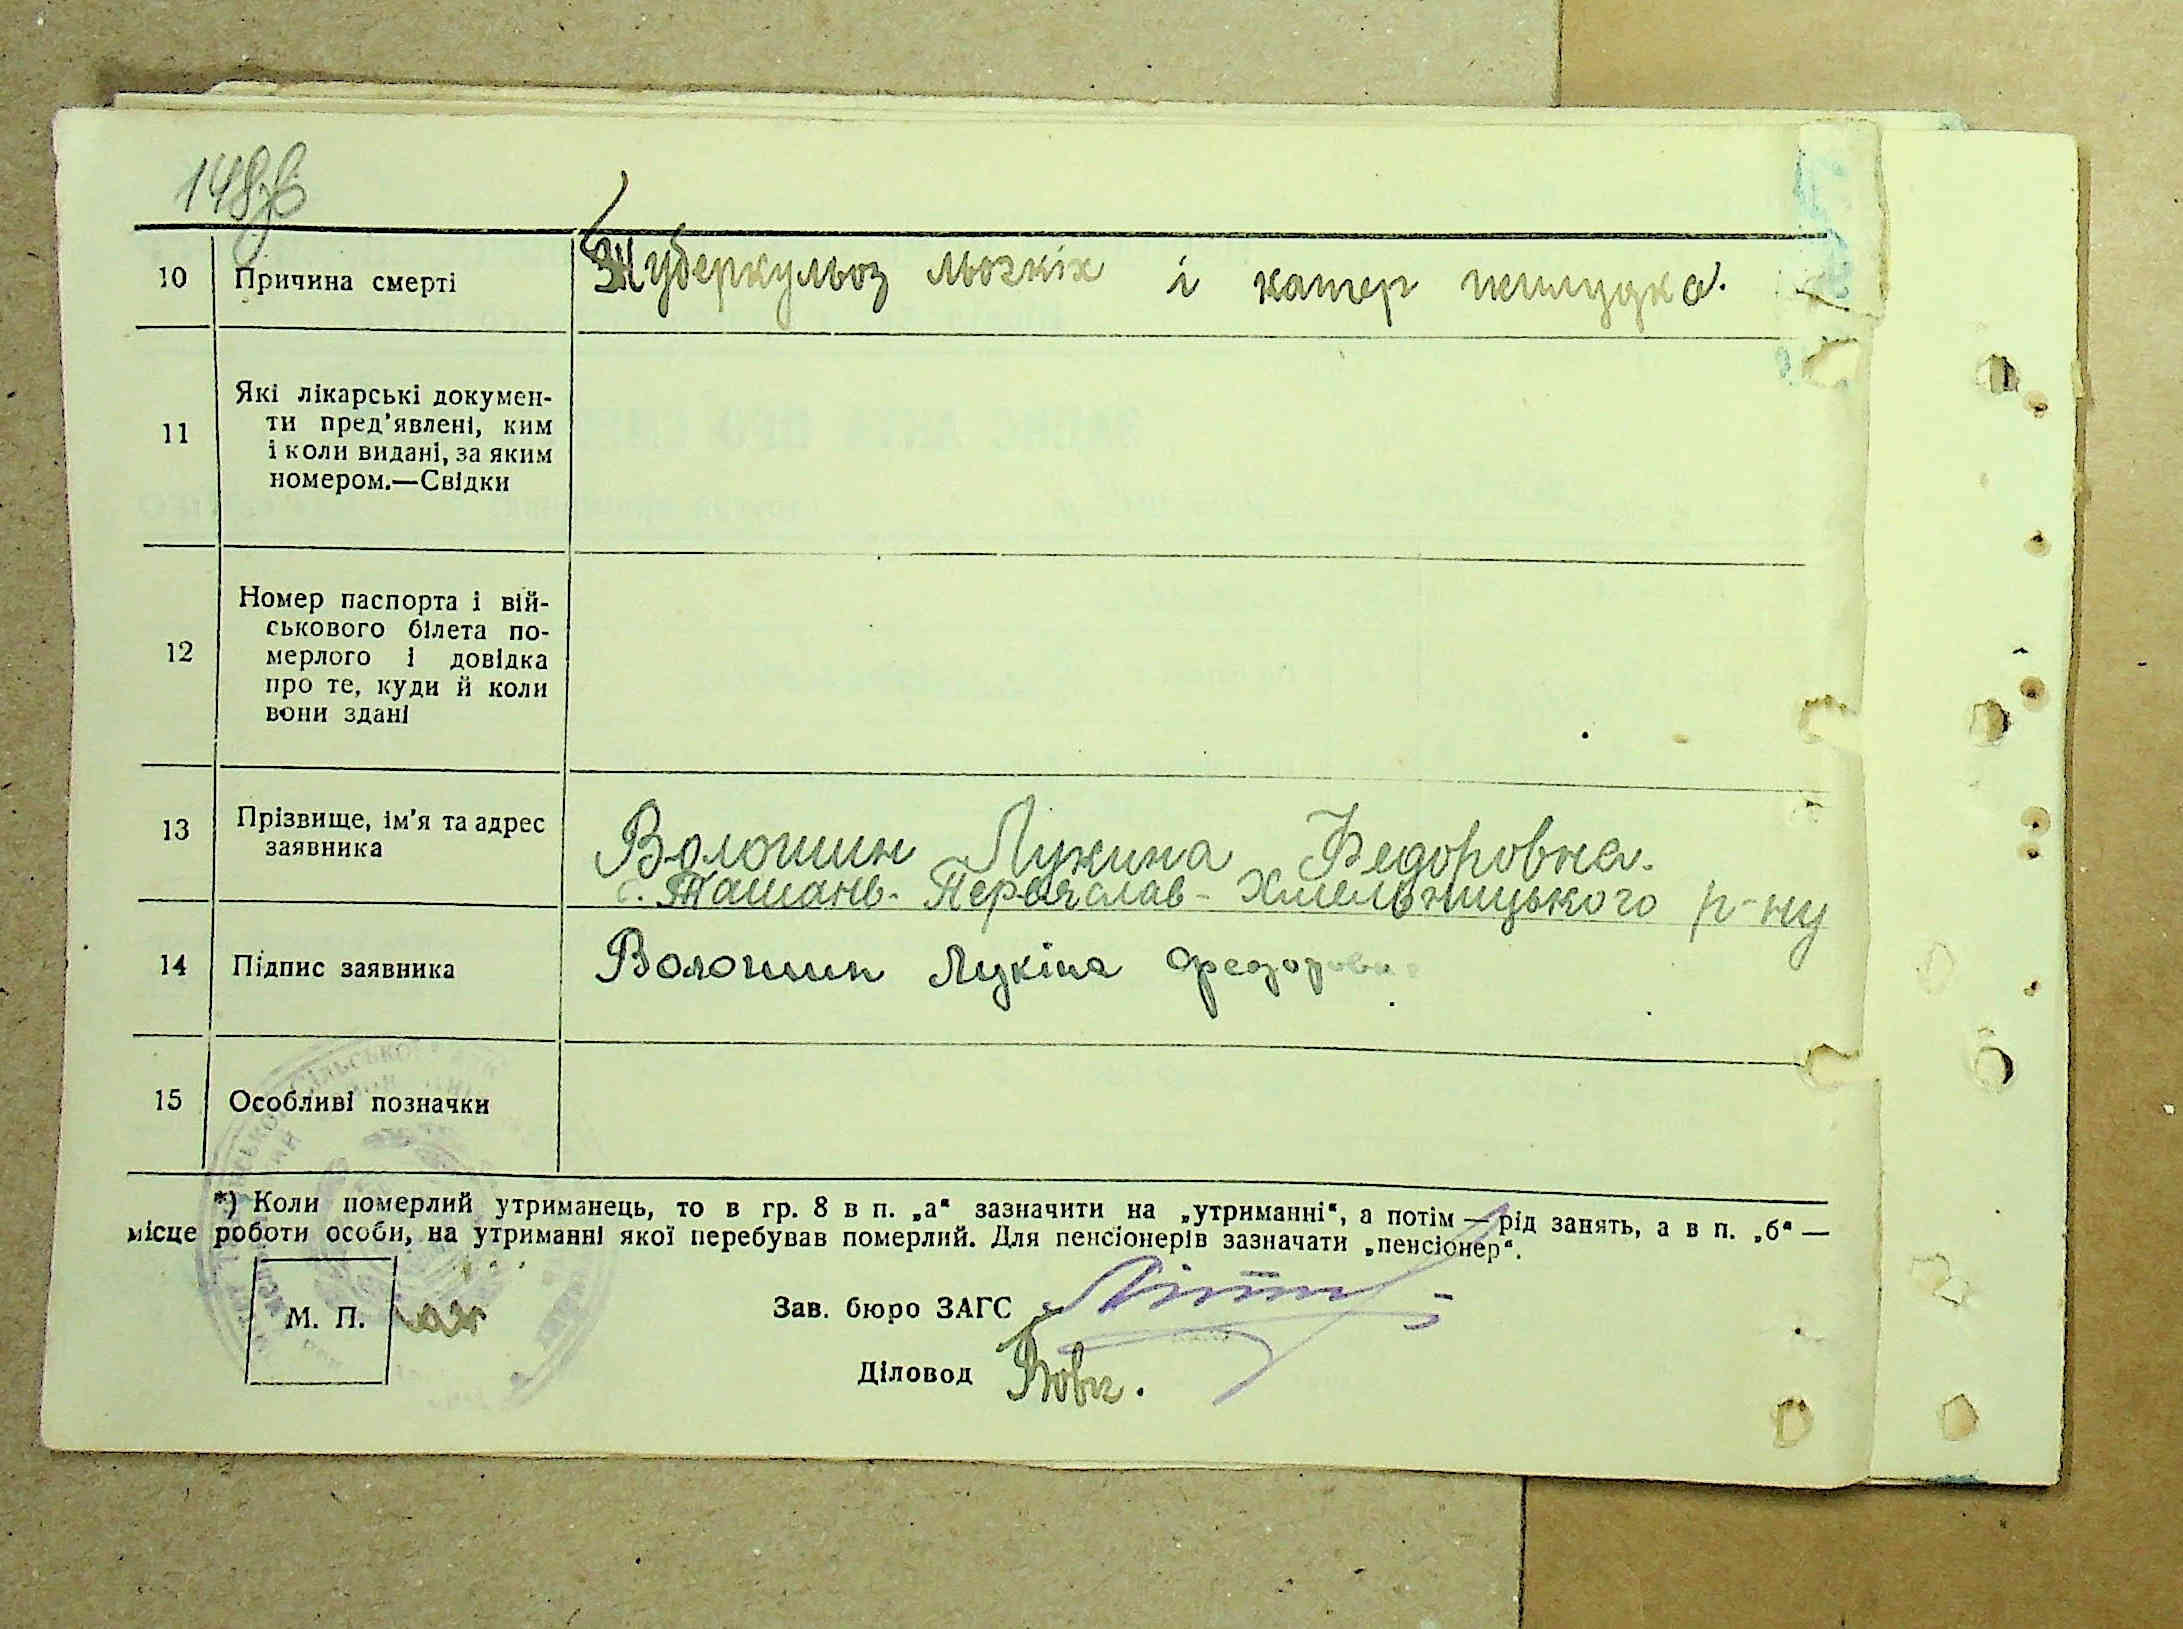 148
10 Причина смерті Туберкульоз льогкіх і катер желудка.
11 Які лікарські докумен-
ти пред'явлені, ким
і коли видані, за яким
номером.—Свідки
12 Номер паспорта і вій-
ськового білета по-
мерлого і довідка
про те, куди й коли
вони здані
13 Прізвище, ім'я та адрес
заявника
Волошин Лукина Федоровна.
с. Ташань. Переяслав-Хмельницького р-ну
14 Підпис заявника Волошин Лукіна Федоровна
15 Особливі позначки
*) Коли померлий утриманець, то в гр. 8 в п. „а“ зазначити на „утриманні“, а потім — рід занять, а в п. „б“ —
місце роботи особи, на утриманні якої перебував померлий. Для пенсіонерів зазначати „пенсіонер“.
М. П.
Зав. бюро ЗАГС
Діловод